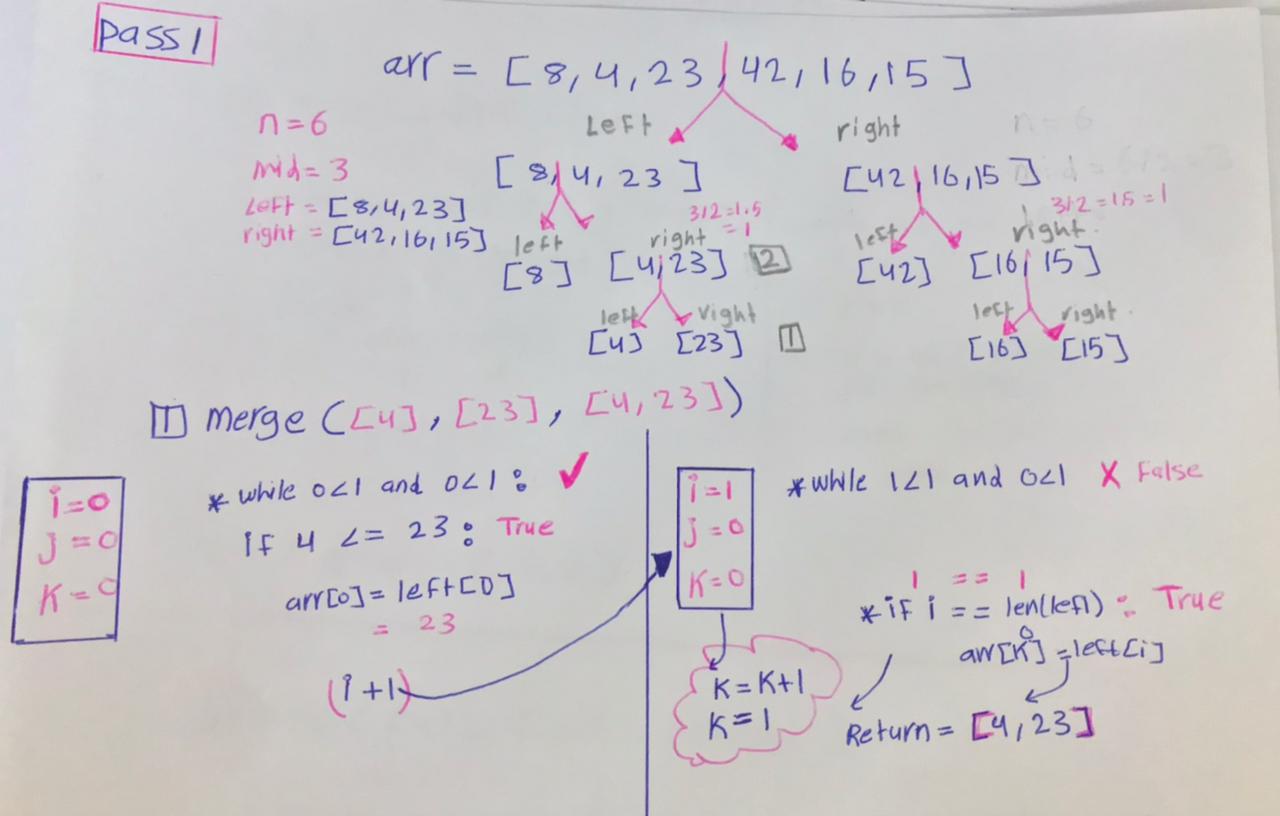 Pass 1
arr = [8, 4, 23, 42, 16, 15]
n=6
mid= 3
Left = [8,4,23]
right = [42,16,15]
Left
right
[8, 4, 23]
[42, 16, 15]
3/2 = 1.5
= 1
3/2 = 1.5 = 1
left
right
left
right
[8]
[4, 23]
2
[42]
[16, 15]
left
right
left
right
[4]
[23]
1
[16]
[15]
1 merge ([4], [23], [4, 23])
i=0
J=0
K=0
* while 0<1 and 0<1 :
if 4 <= 23 : True
arr[0] = left[0]
= 23
(i+1)
i=1
J=0
K=0
K=K+1
K=1
* while 1<1 and 0<1 X False
1 == 1
* if i == len(left) : True
0
arr[K] = left[i]
Return = [4, 23]